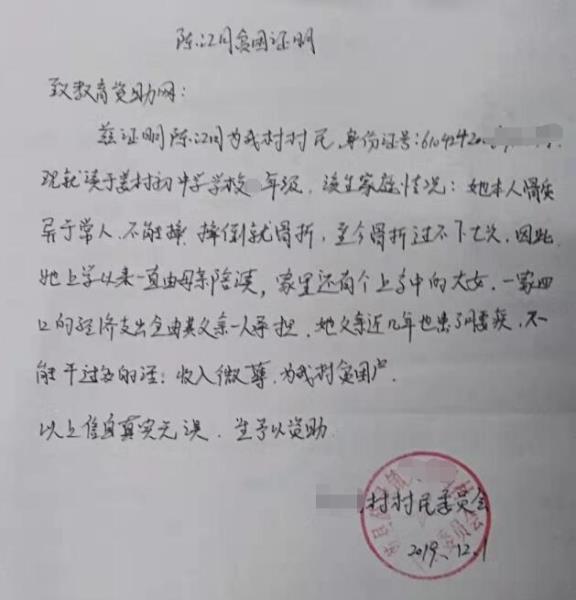 陈江月贫困证明
致教育资助网：
兹证明陈江月为我村村民，身份证号：6104242
现就读于 村初中学学校 年级，该生家庭情况：她本人骨质
异于常人，不能摔，摔倒就骨折，至今骨折过不下七次，因此
她上学以来一直由母亲陪读，家里还有个上高中的大女，一家四
口的经济支出全由其父亲一人承担，她父亲近几年也患了腰疾，不
能干过多的活；收入微薄，为我村贫困户。
以上信息真实无误，望予以资助
村村民委员会
2019.12.1